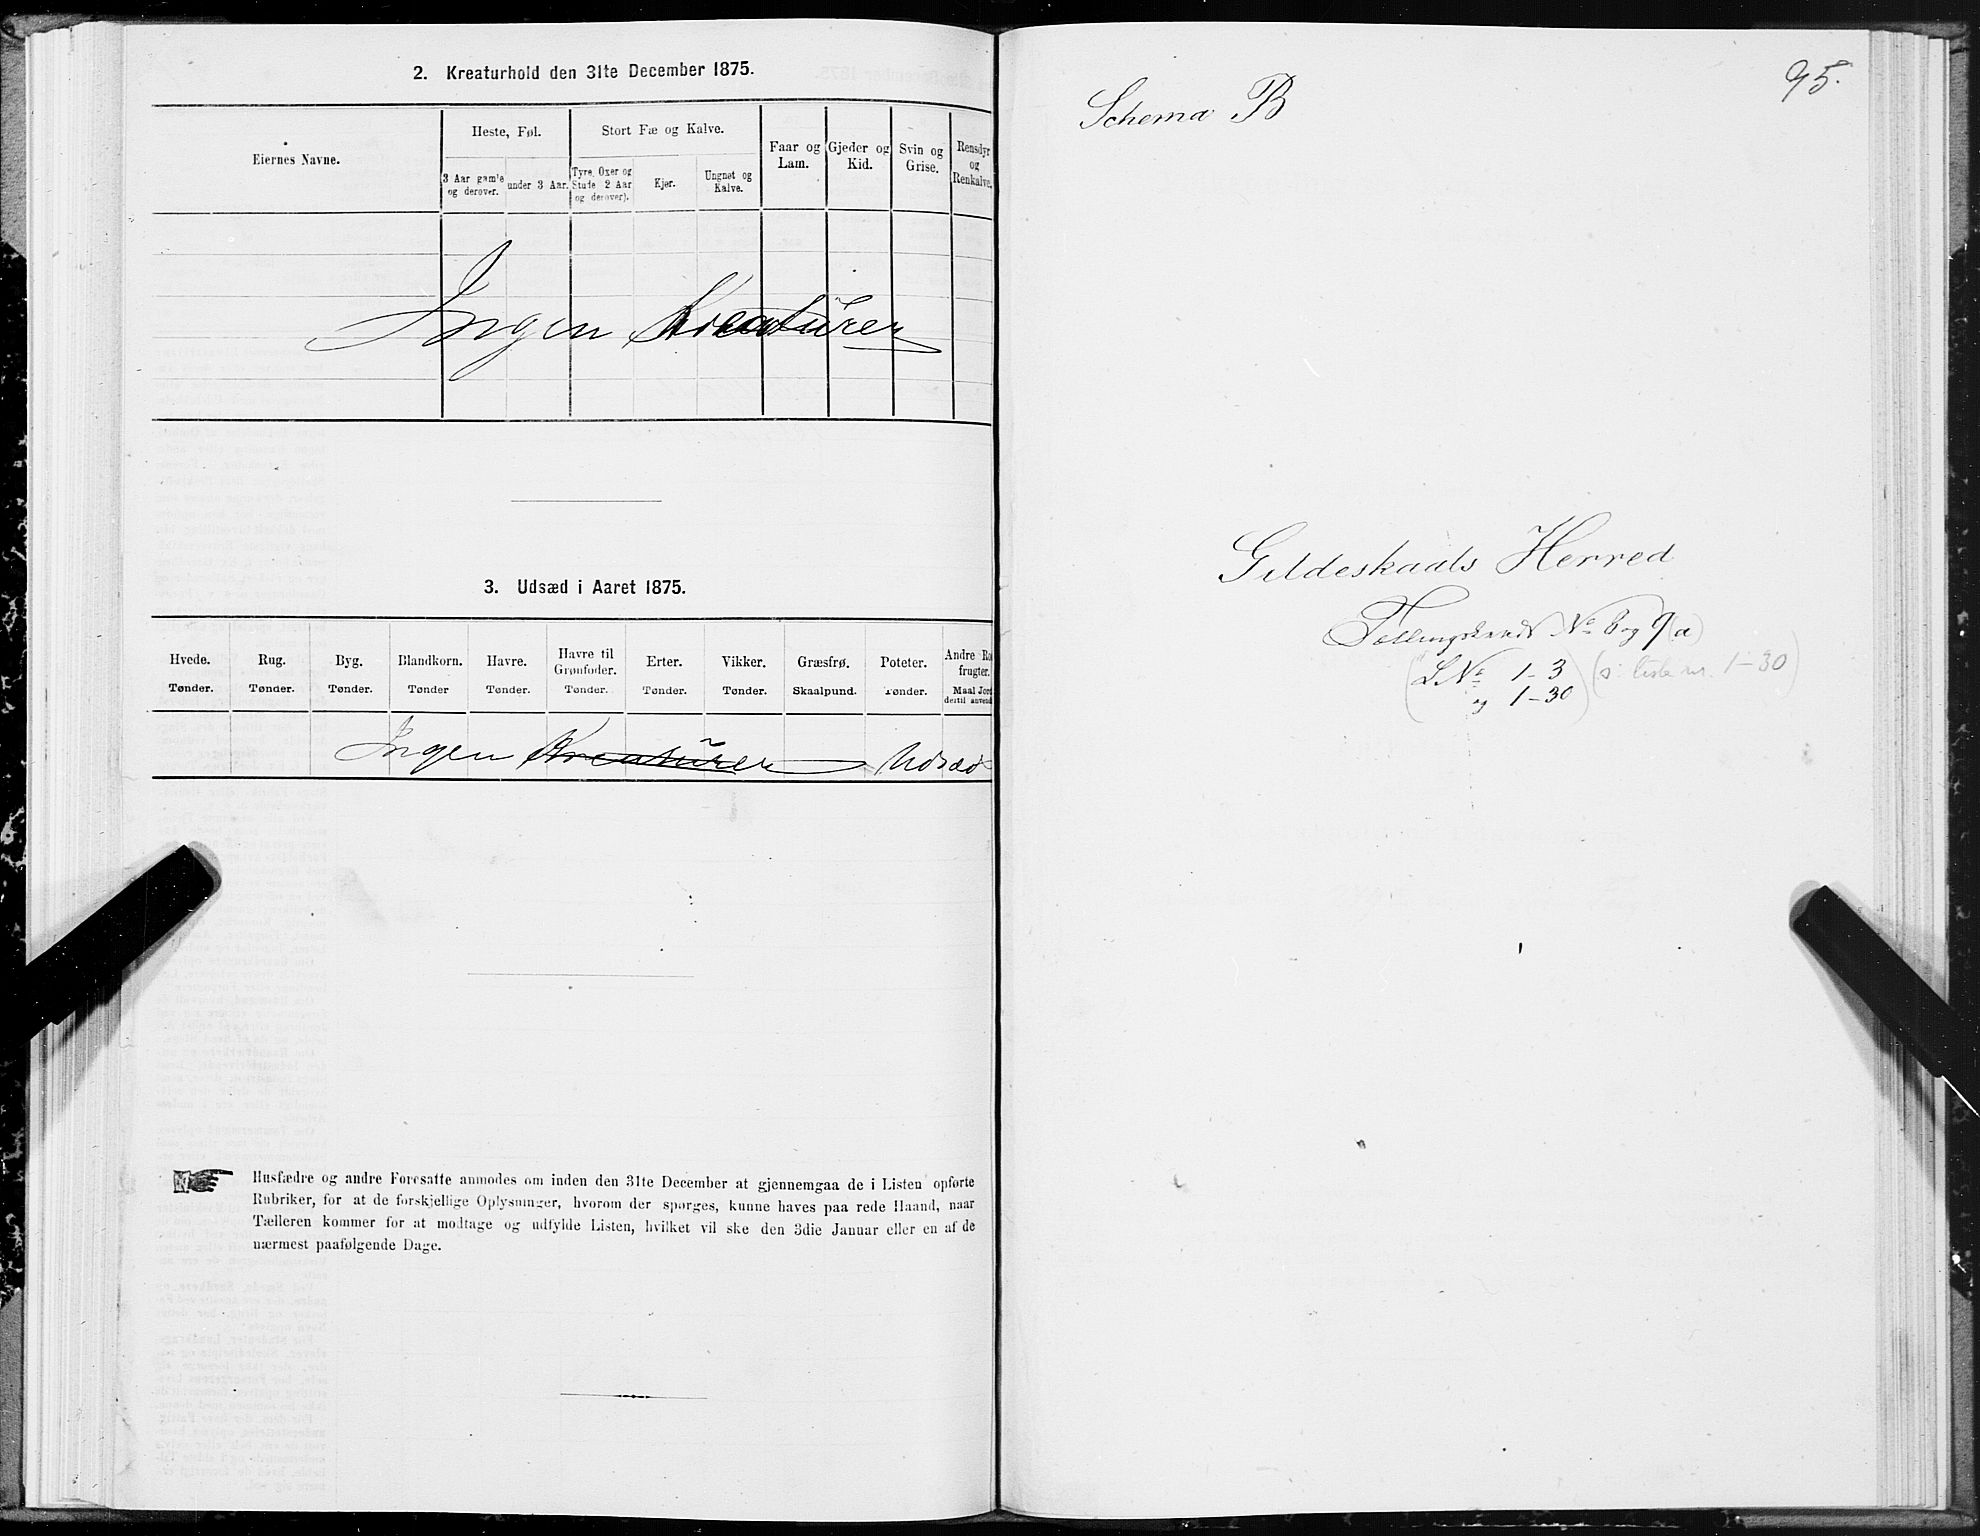 2. Kreaturhold den 31te December 1875.
Eiernes Navne.
Heste, Føl.
Stort Fæ og Kalve.
Faar og Lam.
Gjeder og Kid.
Svin og Grise.
Rensdyr og Renkalve.
3 Aar gamle og derover.
under 3 Aar.
Tyre, Oxer og Stude 2 Aar og derover).
Kjør.
Ungnøt og Kalve.
Ingen Kreaturer
3. Udsæd i Aaret 1875.
Hvede. Tønder.
Rug. Tønder.
Byg. Tønder.
Blandkorn. Tønder
Havre. Tønder.
Havre til Grønfoder. Tønder.
Erter. Tønder.
Vikker. Tønder.
Græsfrø. Skaalpund.
Poteter. Tønder.
Andre Ro
frugter.
Maal Jord
dertil anvend
Ingen Kreaturer Udsæd
Husfædre og andre Foresatte anmodes om inden den 31te December at gjennemgaa de i Listen opførte
Rubriker, for at de forskjellige Oplysninger, hvorom der spørges, kunne haves paa rede Haand, naar
Tælleren kommer for at modtage og udfylde Listen, hvilket vil ske den 3die Januar eller en af de
nærmest paafølgende Dage.
95.
Schema B
Gildeskaals Herred
Tællingskreds No 8 og 9(a)
(LNo 1-3) (s: liste nr. 1-30)
og 1-30